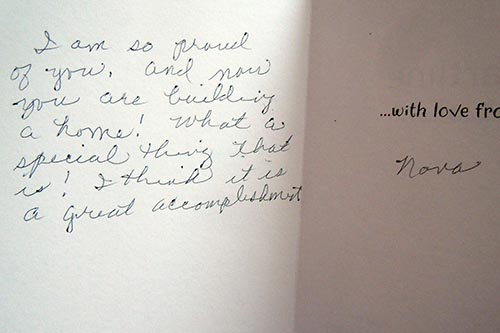 I am so proud
of you, and now
you are building
a home! What a
special thing that
is! I think it is
a great accomplishment
...with love fro
Nova